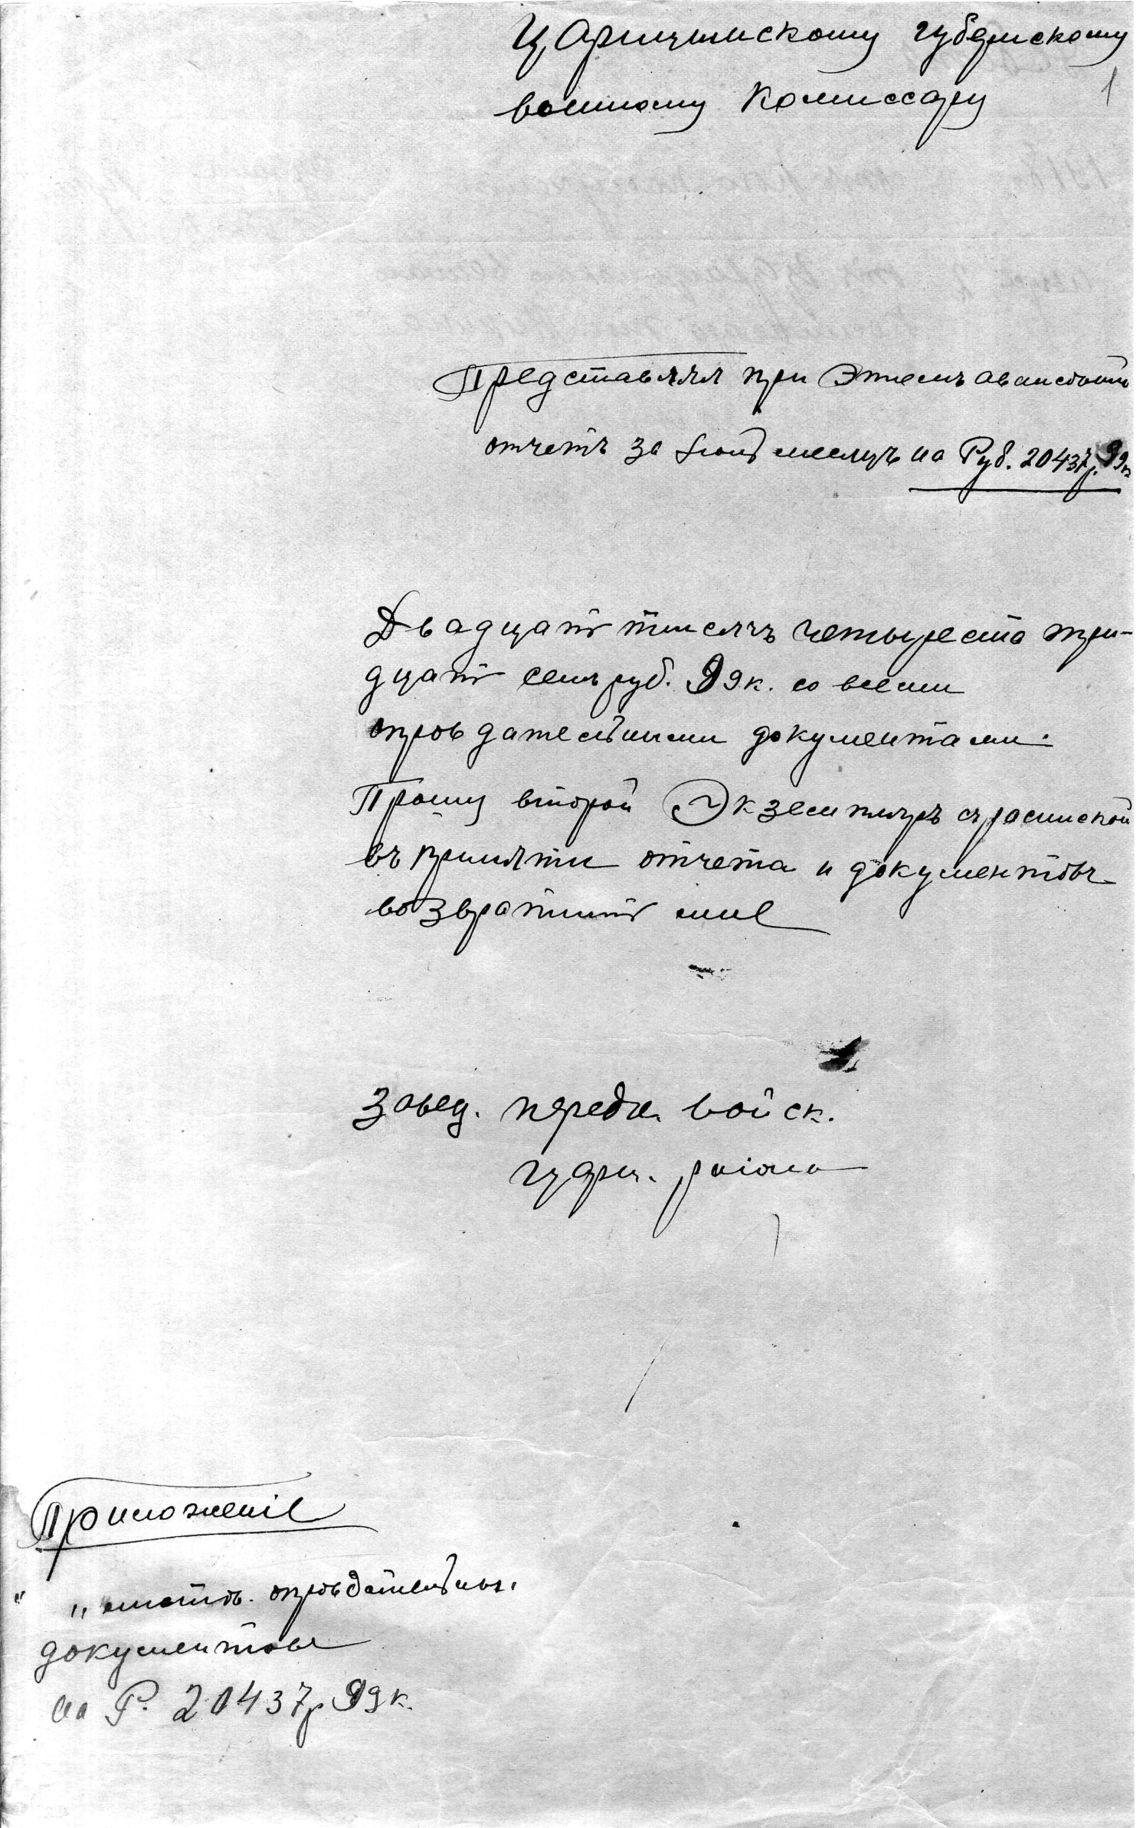 Царицинскому губернскому
1
военному Комиссару
Представляя при Этемъ авансовый
отчетъ за месяцъ на Руб. 20437р. 99к
Двадцать тысячъ четыреста три-
дцать семь руб. 99к. со всеми
оправдательными документами.
Прошу второй Экземпляръ с роспиской
въ принятии отчета и документовъ
возвратить мне
Завед. передв. войск.
Цариц. раiона
Приложенiе
" " оправдательн.
документовъ
на Р. 20437р 99к.